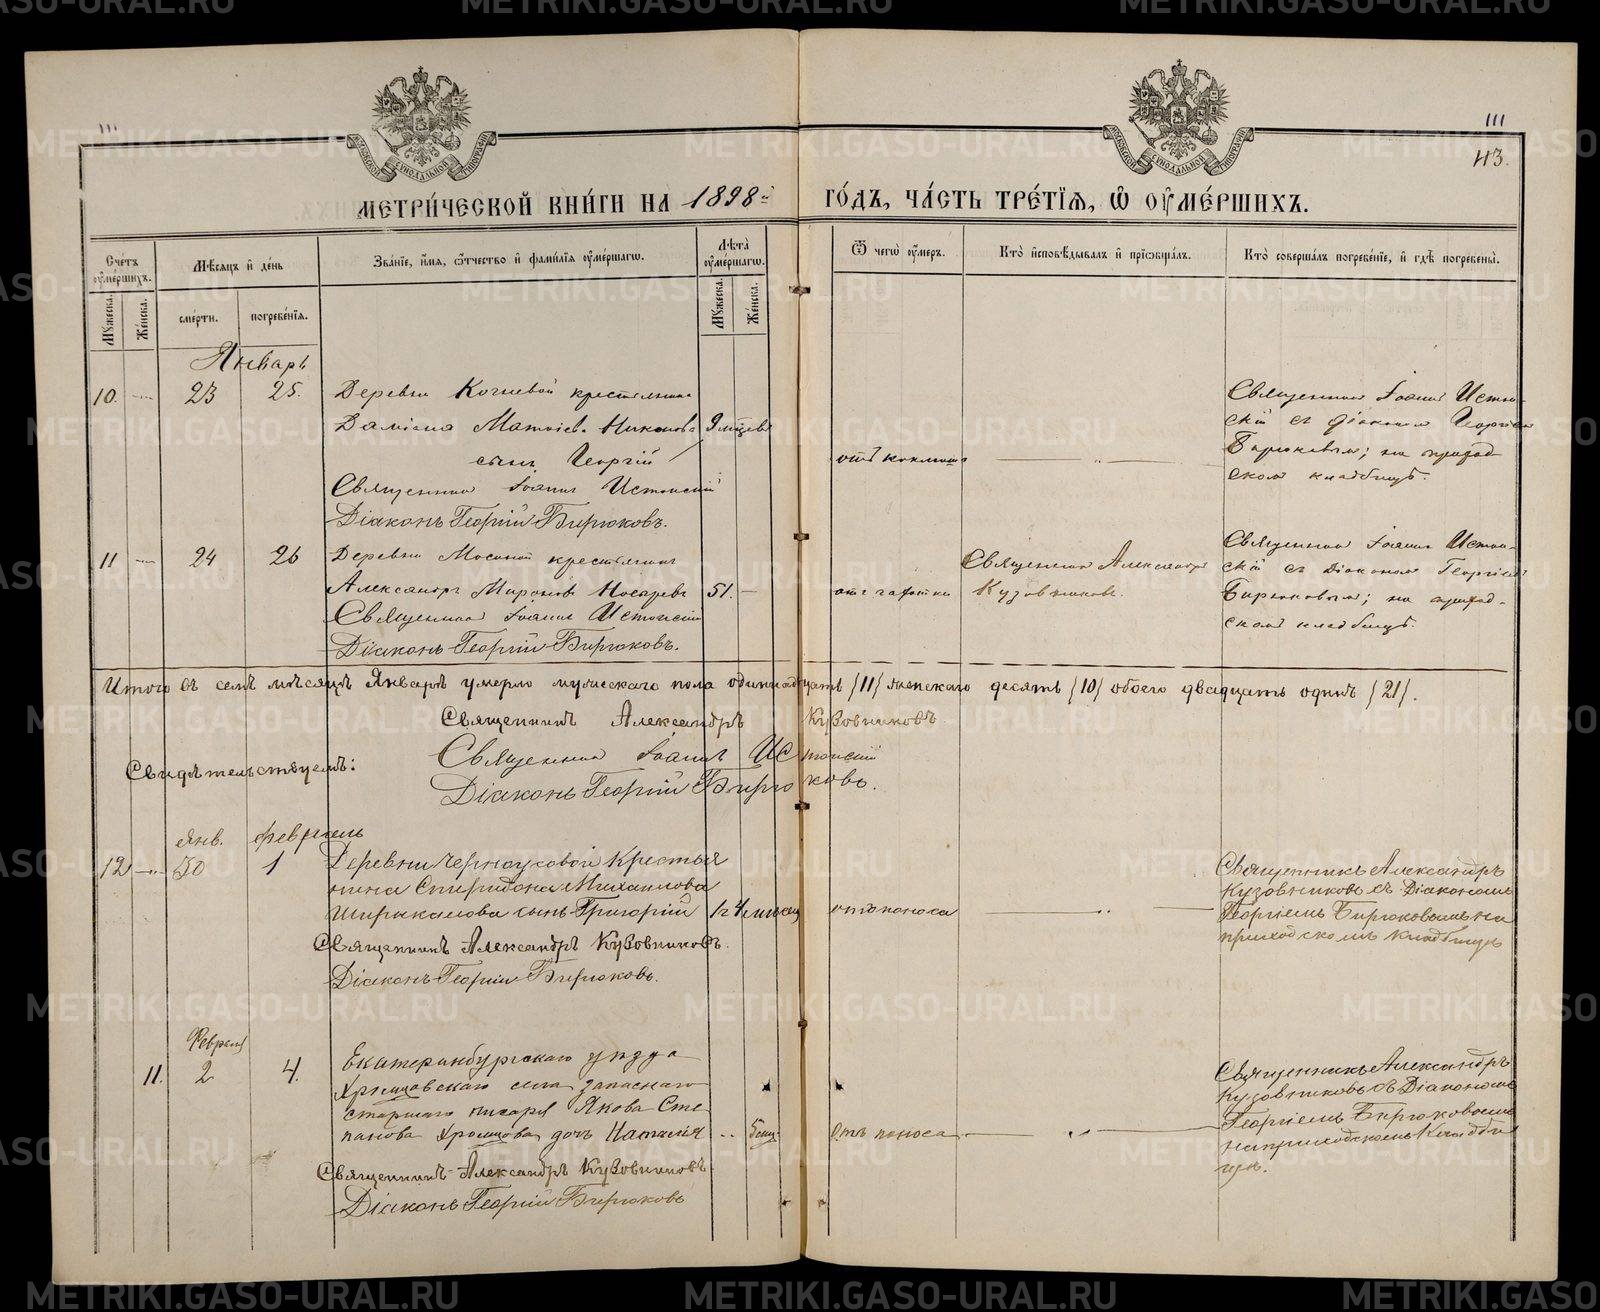 111
111
43.
МЕТРИ́ЧЕСКОЙ КНИ́ГИ НА 1898й ГО́ДЪ, ЧА́СТЬ ТРЕ́ТІѦ, Ѿ ОУМЕ́РШИХЪ.
Сче́тъ оуме́ршихъ.
Му́жеска.
Же́нска.
Мѣ́сяцъ и де́нь
сме́рти.
погребе́нїя.
Зва́нїе, и́мя, о́тчество и фами́лїя оуме́ршагѡ.
Лѣ́та оуме́ршагѡ.
Му́жеска.
Же́нска.
Ѿ чегѡ̀ оу́меръ.
Кто̀ и҆сповѣ́дывалъ и҆ прїѡбща́лъ.
Кто̀ соверша́лъ погребе́нїе, и҆ гдѣ̀ погребены̀.
Январь
10. 23 25. Деревни крестьянина
Даміана Никонова 9 мѣсяцевъ
сынъ Георгій
отъ коклюша
Священникъ Іоаннъ Истокскій
Діаконъ Георгій Бирюковъ.
Священникъ Іоаннъ Исток-
скій съ діакономъ Георгіемъ
Бирюковымъ; на приход-
скомъ кладбищѣ.
11 24 26 Деревни крестьянинъ
Александръ Мироновъ Носаревъ 51.
Священникъ Іоаннъ Истокскій
Діаконъ Георгій Бирюковъ.
Священникъ Александръ
Кузовниковъ.
Священникъ Іоаннъ Исток-
скій съ Діакономъ Георгіемъ
Бирюковымъ; на приход-
скомъ кладбищѣ.
Итого въ семъ мѣсяцѣ Январѣ умерло мужескаго пола одиннадцать {11} женскаго десять {10} обоего двадцать одинъ {21}.
Священникъ Александръ Кузовниковъ.
Свидѣтельствуемъ:
Священникъ Іоаннъ Истокскій
Діаконъ Георгій Бирюковъ.
Янв. Февраль
12 30 1 Деревни Черноусовой Крестья
нина Спиридона Михаилова
Ширыкалова сынъ Григорій 1 г 4 месяц
отъ поноса
Священникъ Александръ Кузовниковъ.
Діаконъ Георгій Бирюковъ.
Священникъ Александръ
Кузовниковъ съ Діакономъ
Георгіемъ Бирюковымъ на
приходскомъ кладбищѣ
Февраля
11. 2 4. Екатеринбургскаго уѣзда
Хромцовскаго села запаснаго
старшаго писаря Якова Сте
панова Хромцова дочь Наталія
Отъ поноса
Священникъ Александръ Кузовниковъ
Діаконъ Георгій Бирюковъ
Священникъ Александръ
Кузовниковъ съ Діакономъ
Георгіемъ Бирюковымъ
на приходскомъ Кладби
щѣ.
METRIKI.GASO-URAL.RU